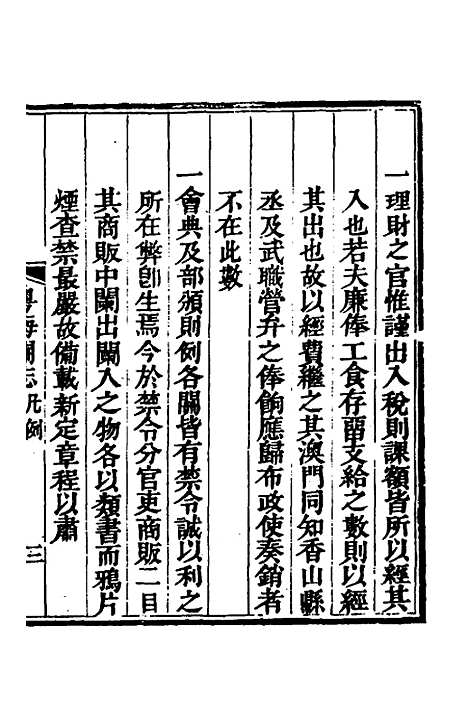 一理財之官惟謹出入稅則課額皆所以經其
入也若夫廉俸工食存畱支給之數則以經
其出也故以經費繼之其澳門同知香山縣
丞及武職營弁之俸餉應歸布政使奏銷者
不在此數
一會典及部頒則例各關皆有禁令誠以利之
所在弊卽生焉今於禁令分官吏商販二目
其商販中闌出闌入之物各以類書而鴉片
煙查禁最嚴故備載新定章程以肅
粵海關志凡例
三